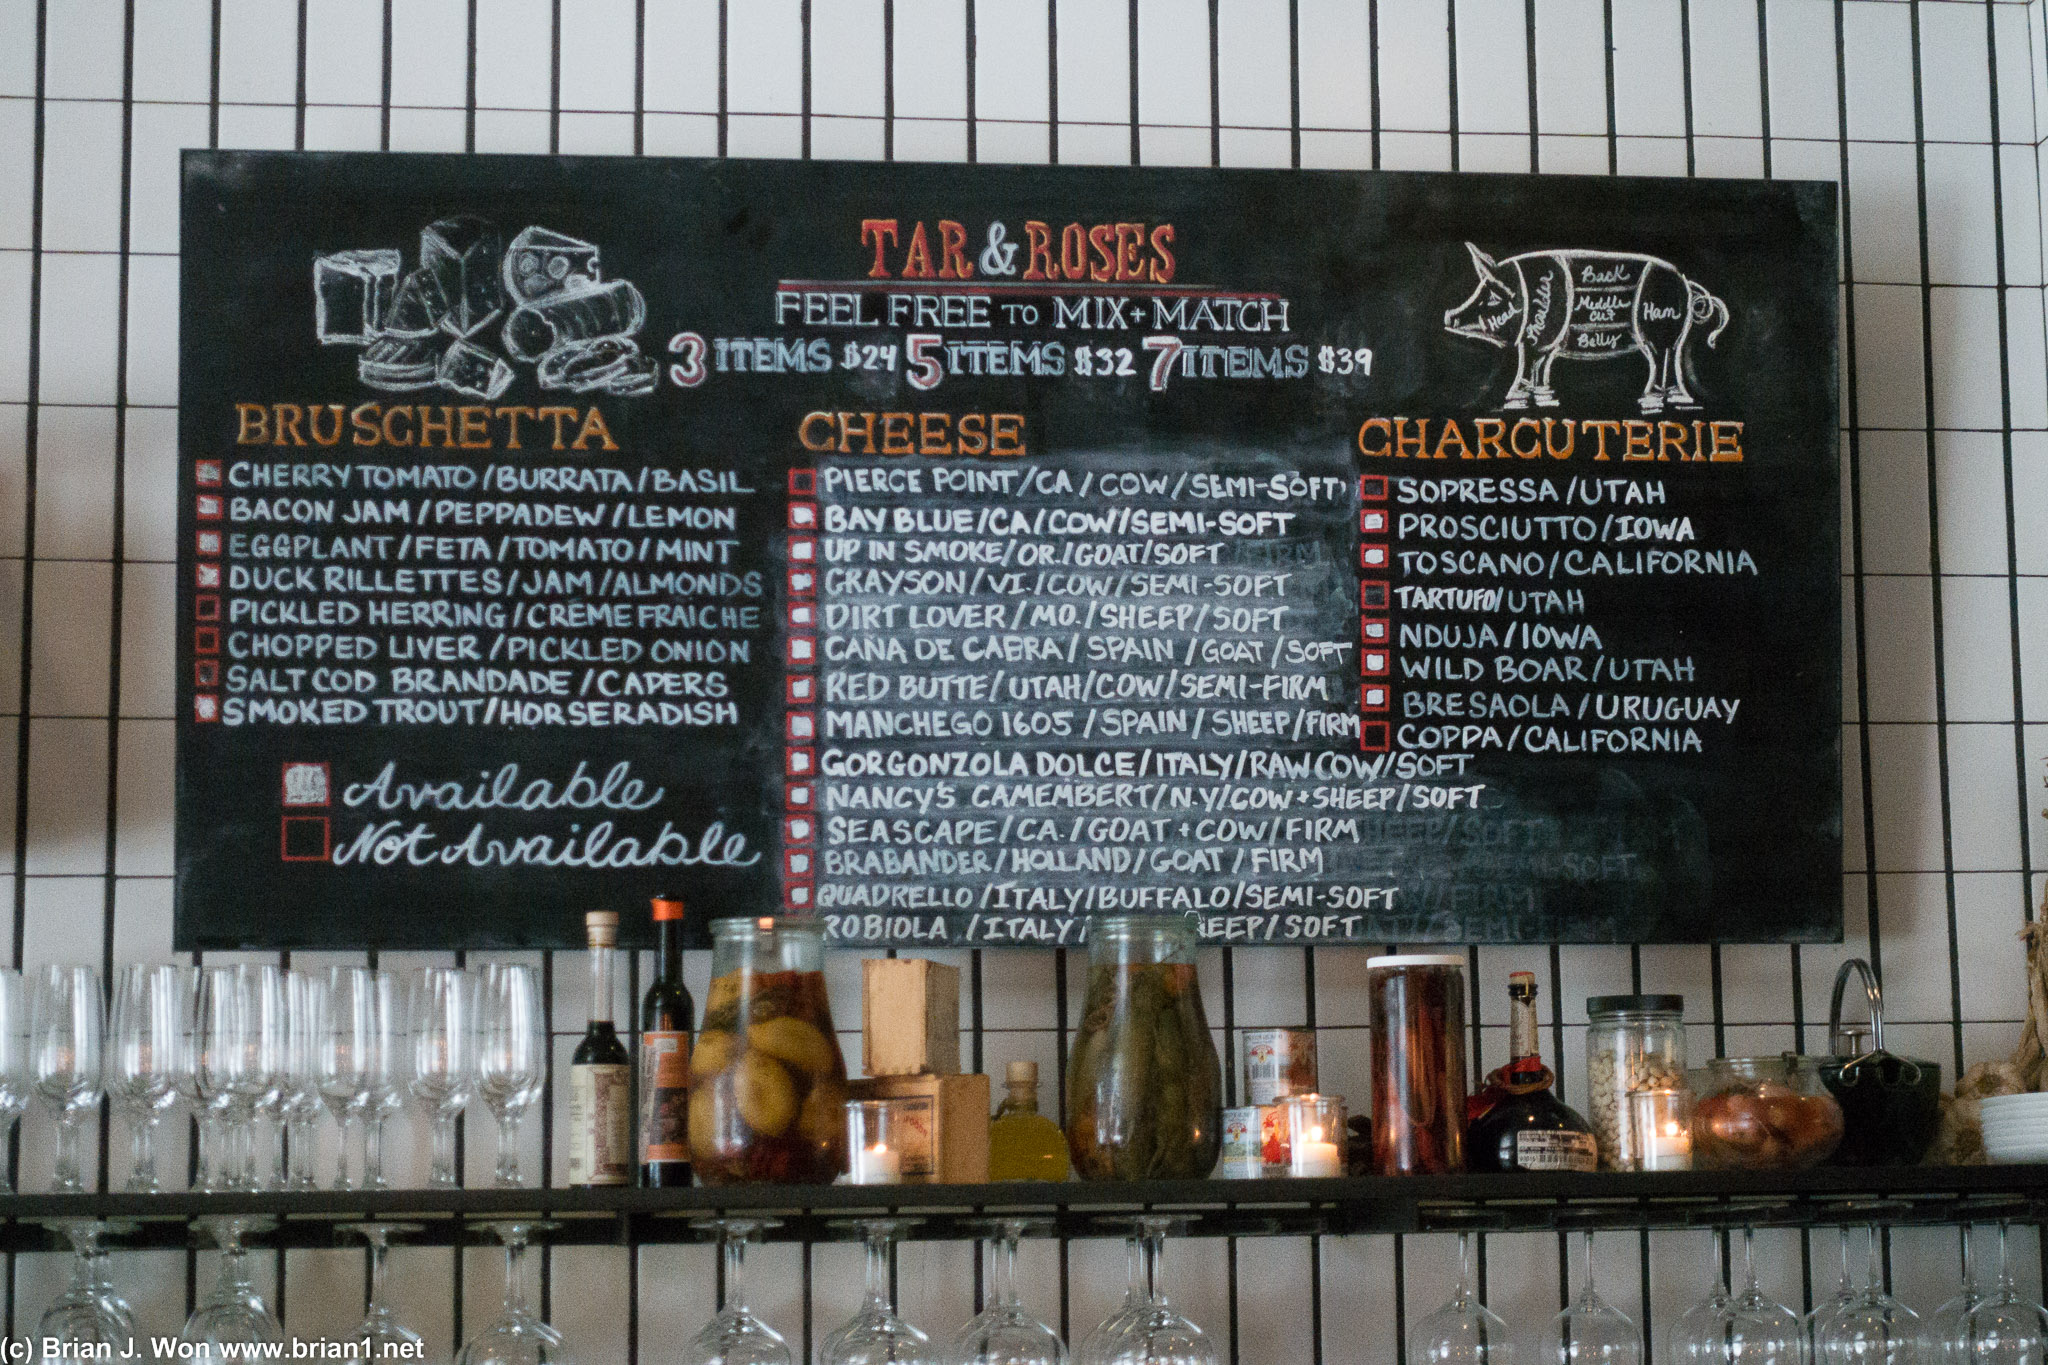 TAR & ROSES
FEEL FREE TO MIX + MATCH
3 ITEMS $24 5 ITEMS $32 7 ITEMS $39
Head
Shoulder
Back
Middle
cut
Belly
Ham
BRUSCHETTA
CHERRY TOMATO/BURRATA/BASIL
BACON JAM/PEPPADEW/LEMON
EGGPLANT/FETA/TOMATO/MINT
DUCK RILLETTES/JAM/ALMONDS
PICKLED HERRING/CRÈME FRAICHE
CHOPPED LIVER/PICKLED ONION
SALT COD BRANDADE/CAPERS
SMOKED TROUT/HORSERADISH
Available
Not Available
CHEESE
PIERCE POINT/CA/COW/SEMI-SOFT
BAY BLUE/CA/COW/SEMI-SOFT
UP IN SMOKE/OR./GOAT/SOFT
GRAYSON/VI./COW/SEMI-SOFT
DIRT LOVER/MO./SHEEP/SOFT
CAÑA DE CABRA/SPAIN/GOAT/SOFT
RED BUTTE/UTAH/COW/SEMI-FIRM
MANCHEGO 1605/SPAIN/SHEEP/FIRM
GORGONZOLA DOLCE/ITALY/RAW COW/SOFT
NANCY'S CAMEMBERT/N.Y/COW+SHEEP/SOFT
SEASCAPE/CA./GOAT+COW/FIRM
BRABANDER/HOLLAND/GOAT/FIRM
QUADRELLO/ITALY/BUFFALO/SEMI-SOFT
ROBIOLA/ITALY/ HEEP/SOFT
CHARCUTERIE
SOPRESSA/UTAH
PROSCIUTTO/IOWA
TOSCANO/CALIFORNIA
TARTUFO/UTAH
NDUJA/IOWA
WILD BOAR/UTAH
BRESAOLA/URUGUAY
COPPA/CALIFORNIA
(c) Brian J. Won www.brian1.net